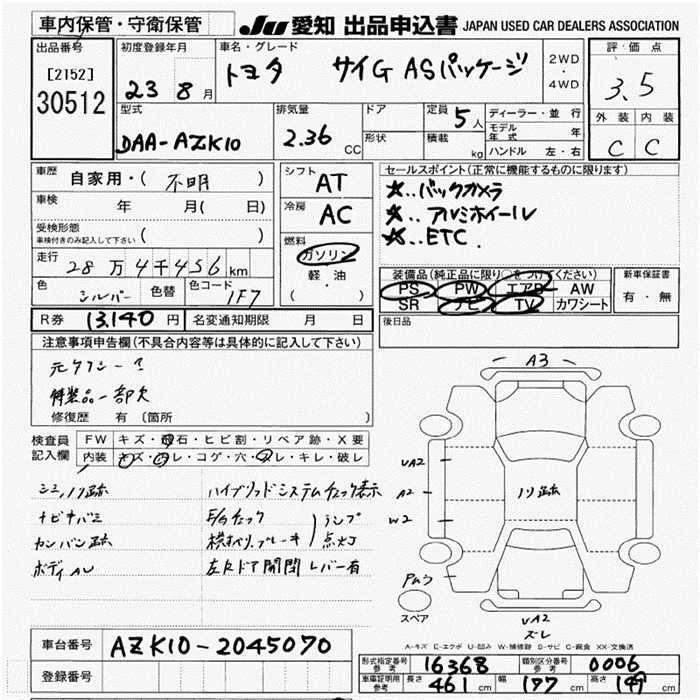 車内保管・守衛保管
JU 愛知 出品申込書 JAPAN USED CAR DEALERS ASSOCIATION
出品番号
[2152]
30512
初度登録年月
23 8 月
車名・グレード
トヨタ サイG ASパッケージ
2WD
・
4WD
評・価・点
3.5
外装 内装
C C
型式
DAA-AZK10
排気量
2.36 CC
ドア
形状
定員
5 人
積載
kg
ディーラー・並行
モデル年式 年
ハンドル 左・右
車歴
自家用・( 不明 )
車検
年 月( 日)
受検形態
車検付きのみ記入して下さい ( )
走行
28 万 4千456 km
色
シルバー
色替
色コード
1F7
シフト
AT
冷房
AC
燃料
ガソリン
軽・油
( )
セールスポイント(正常に機能するものに限ります)
☆‥バックカメラ
☆‥アルミホイール
☆‥ETC.
装備品(純正品に限り○をつけてください)
PS PW エアB AW
SR ナビ TV カワシート
新車保証書
有・無
後日品
R券 13,140 円
名変通知期限 月 日
注意事項申告欄(不具合内容等は具体的に記入して下さい)
元タクシー
特装品一部欠
修復歴 有 (箇所 )
検査員
記入欄
FW キズ・飛石・ヒビ割・リペア跡・X要
内装 キズ・スレ・コゲ・穴・ヌレ・キレ・破レ
シミ、ノリ跡
ナビキバミ
カンバン跡
ボディAU
ハイブリッドシステムチェック表示
E/Gチェック
横すべり、ブレーキ
ランプ
点灯
左Rドア開閉レバー有
A3
UA2
A2
W2
ノリ跡
Pムラ
スペア
UA2
ズレ
A-キズ E-エクボ U-凹み W-補修跡 S-サビ C-腐食 XX-交換済
車台番号 AZK10-2045070
登録番号
型式指定番号
参考
16368
類別区分番号
参考
0006
車庫証明用
参考
長さ 461 cm
幅 177 cm
高さ 149 cm